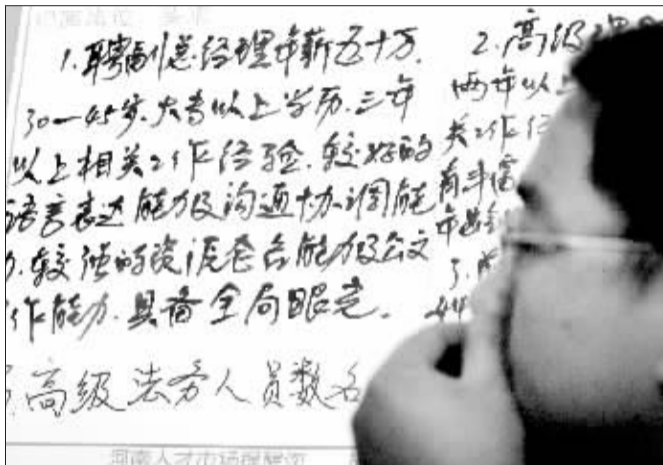 1.聘副总经理年薪五十万.
30—45岁.大专以上学历.三年
以上相关工作经验.较好的
语言表达能力及沟通协调能
力.较强的资源整合能力及公文
作能力.具备全局眼光.
高级法务人员数名
2.高级
两年以上
关工作经
3.
河南人才市场